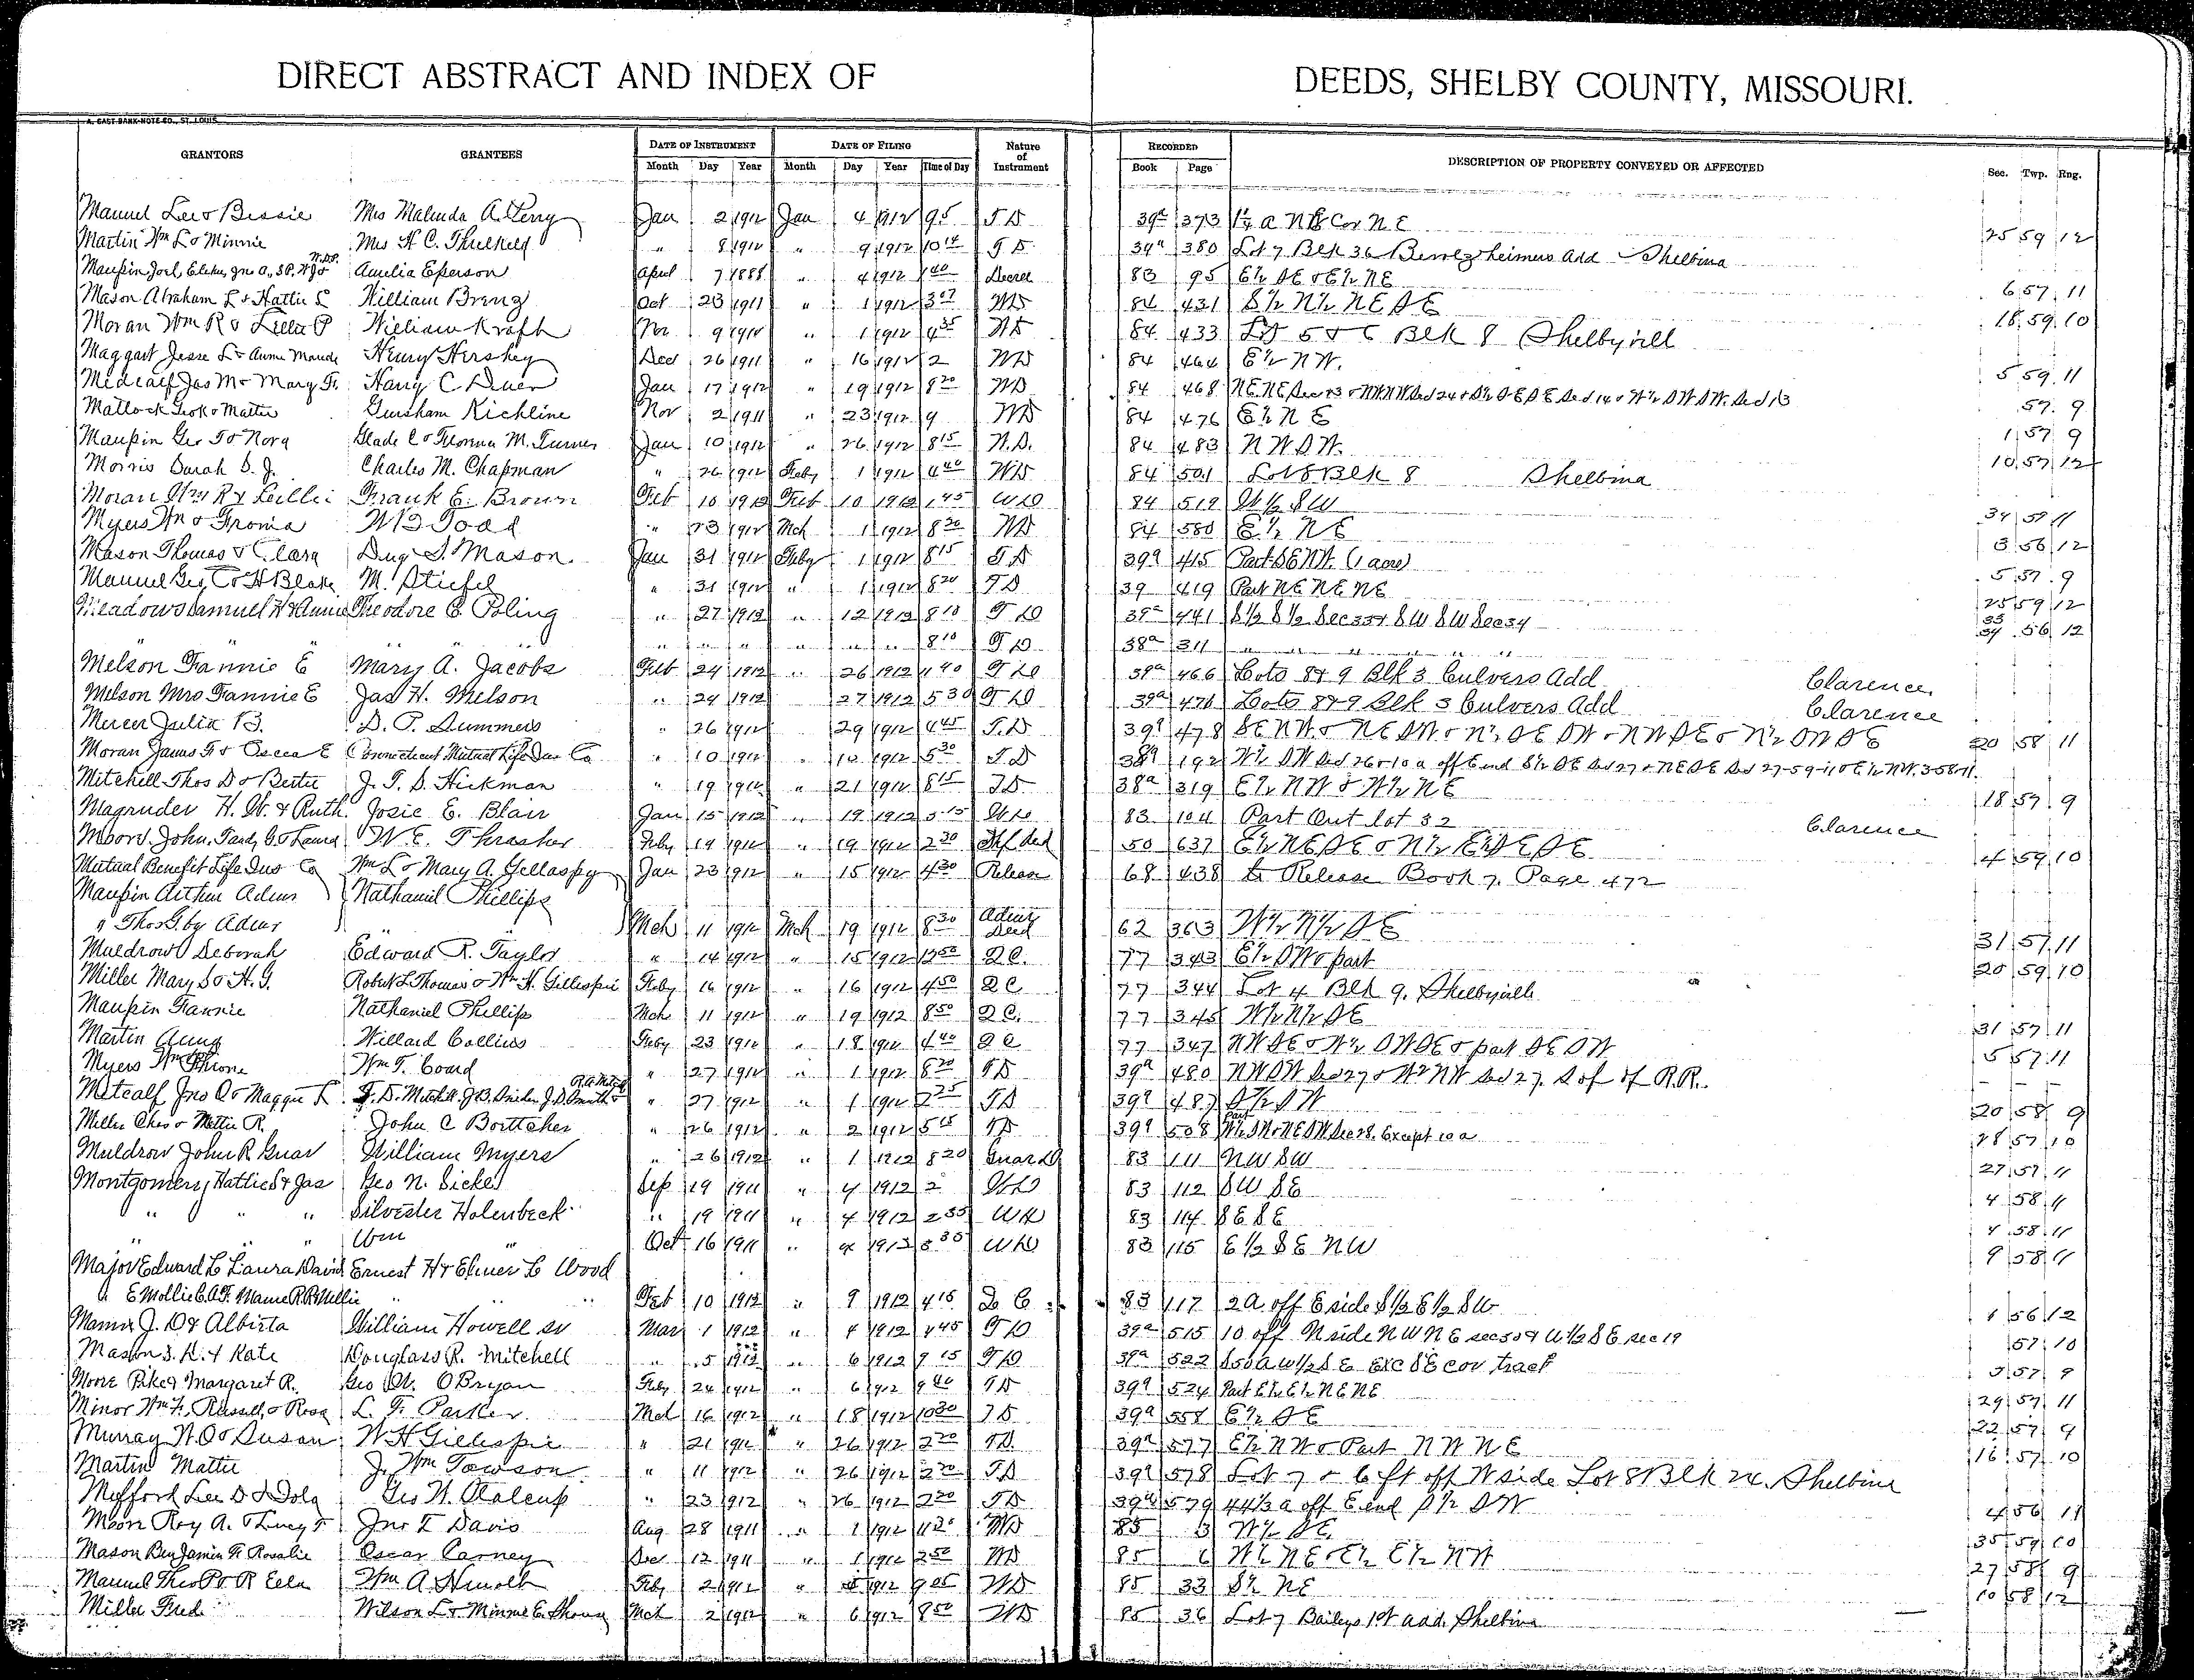 DIRECT ABSTRACT AND INDEX OF DEEDS, SHELBY COUNTY, MISSOURI.
GRANTORS GRANTEES DATE OF INSTRUMENT DATE OF FILING Nature of Instrument RECORDED DESCRIPTION OF PROPERTY CONVEYED OR AFFECTED Sec. Twp. Rng.
Month Day Year Month Day Year Time of Day Book Page
Manuel Leo & Bessie Mrs Malinda A. Perry Jan 2 1912 Jan 4 1912 9 5 T D 39a 373 Cor N E 25 59 12
Martin Wm L & Minnie Mrs H C. Threlkeld " 8 1912 " 9 1912 10 T D 39a 380 Lot 7 Blk 36 Add Shelbina
Amelia Eperson April 7 1888 " 4 1912 1 40 Decree 83 95 E½ SE & E½ NE 6 57 11
Mason Abraham L & Hattie William Brenz Oct 23 1911 " 1 1912 3 07 WD 84 431 S½ N½ NE SE 18 59 10
Moran Wm R & Lillie P William Kraft Nov 9 191 " 1 1912 4 35 WD 84 433 Lot 5 & 6 Blk 8 Shelbyville
Maggart Jesse L & Annie Maude Henry Hershey Dec 26 1911 " 16 1912 2 WD 84 464 E½ NW. 5 59 11
Medcalf Jas M & Mary F. Harry C Duer Jan 17 1912 " 19 1912 8 20 WD 84 468 57 9
Matlock & Mattie Gersham Richline Nov 2 1911 " 23 1912 9 WD 84 476 E½ NE 1 57 9
Maupin Geo T & Nora Glade C & M. Turner Jan 10 1912 " 26 1912 8 15 W.D. 84 483 NW SW. 10 57 12
Morris Sarah S. J. Charles M. Chapman " 26 1912 Feby 1 1912 4 40 WD 84 501 Lot 8 Blk 8 Shelbina
Moran Wm R & Lillie Frank E. Brown Feb 10 1912 Feb 10 1912 1 45 WD 84 519 W½ SW 34 59 11
Myers Wm & Fronia W B Todd " 23 1912 Mch 1 1912 8 20 WD 84 580 E½ NE 3 56 12
Mason Thomas & Clara S. Mason Jan 31 1912 Feby 1 1912 8 15 T D 39a 415 Part SE NW. (1 acre) 5 57 9
Manuel Geo C & H Blake M. Stiefel " 31 1912 " 1 1912 8 20 T D 39 419 Part NE NE NE 25 59 12
Meadows Samuel H & Annie Theodore C Poling " 27 1912 " 12 1912 8 10 T D 39a 441 S½ S½ Sec 33 & SW SW Sec 34 33 34 56 12
" " " " " " " " " " 8 10 T D 38a 311 " " " "
Melson Fannie E Mary A. Jacobs Feb 24 1912 " 26 1912 1 40 T D 39a 466 Lots 8 & 9 Blk 3 Culvers Add Clarence.
Melson Mrs Fannie E Jas H. Melson " 24 1912 " 27 1912 5 30 T D 39a 476 Lots 8 & 9 Blk 3 Culvers Add Clarence
Mercer Julia B. D. P. Summers " 26 1912 29 1912 4 45 T.D 39a 478 SE NW & NE SW & N½ SE SW & NW SE & N½ SW SE 20 58 11
Moran James F & E Connecticut Mutual Life Ins Co " 10 1912 " 10 1912 5 30 T.D 38a 192
Mitchell Thos D & Bettie J. T. S. Hickman " 19 1912 " 21 1912 8 15 T D 38a 319 E½ NW & W½ NE 18 57 9
Magruder H. W. & Ruth Josie E. Blair Jan 15 1912 " 19 1912 5 15 WD 83 104 Part Out lot 32 Clarence
Moore John, & Laura W. E. Thrasher Feby 19 1912 " 19 1912 2 30 Shf ded 50 637 4 59 10
Mutual Benefit Life Ins Co Wm L & Mary A. Gillaspy Jan 23 1912 " 15 1912 4 30 Release 68 438 to Release Book 7. Page 472
Maupin Arthur Admr Nathaniel Phillips
" Thos G. by Admr " Mch 11 1912 Mch 19 1912 8 30 Admr Deed 62 363 W½ N½ SE 31 57 11
Muldrow Deborah Edward R. Taylor " 14 1912 " 15 1912 50 QC. 77 343 E½ SW & part 20 59 10
Miller Mary S & H. G. Robert L Thomas & Wm H. Gillespie Feby 16 1912 " 16 1912 4 50 QC 77 344 Lot 4 Blk 9. Shelbyville
Maupin Fannie Nathaniel Phillips Mch 11 1912 " 19 1912 8 50 QC. 77 345 W½ N½ SE 31 57 11
Martin Willard Collins Feby 23 1912 " 18 1912 4 40 QC 77 347 NW SE & W½ SW SE & part SE SW 5 57 11
Myers Wm Wm T. Coard " 27 1912 " 1 1912 8 20 T D 39a 480 NW SW Sec 27 & NW Sec 27. S of R.R.
Metcalf Jno Q & Maggie L. " 27 1912 " 1 1912 2 25 T D 39a 487 S½ SW 20 58 9
Miller Chas & Mettie R. John C Boettcher " 26 1912 " 2 1912 5 05 T D 39a 508 Except 10 a 28 57 10
Muldrow John R Guar William Myers " 26 1912 " 1 1912 8 20 Guar D 83 111 NW SW 27 57 11
Montgomery Hattie & Jas Geo N. Sickel Sep 19 1911 " 4 1912 2 WD 83 112 SW SE 4 58 11
" " " Silvester Holenbeck " 19 1911 " 4 1912 2 35 WD 83 114 SE SE 4 58 11
" " " Wm " Oct 16 1911 " 4 1912 WD 83 115 E½ SE NW 9 58 11
Major Edward L Laura David Ernest H & Elmer L Wood
" E Mollie C. A. F. Mamie R. R. Millie " " " Feb 10 1912 " 9 1912 4 15 Q C 83 117 2 A off E side S½ E½ SW 1 56 12
J. D & Alberta William Howell Sr Mar 1 1912 " 4 1912 4 45 T D 39a 515 10 off N side NW NE sec 30 & W½ SE sec 19 57 10
Mason S. H. & Kate Douglass R. Mitchell " 5 1912 " 6 1912 9 15 T D 39a 522 S 50 A W½ SE Exc SE cor tract 3 57 9
Moore Pike & Margaret R. Geo W. OBryan Feby 24 1912 " 6 1912 9 40 T D 39a 524 Part E½ E½ NE NE 29 57 11
Minor Wm F, Russell, & Rosa L. F. Parker Mch 16 1912 " 18 1912 10 30 T D 39a 558 E½ SE 22 57 9
Murray W. O & Susan W H Gillespie " 21 1912 " 26 1912 2 20 T.D. 39a 577 E½ NW & Part NW NE 16 57 10
Martin Mattie J. Wm Towson " 11 1912 " 26 1912 2 20 T.D 39a 578 Lot 7 & 6 ft off W side Lot 8 Blk 24. Shelbina
Mefford Lee D & Dola Geo W. " 23 1912 " 26 1912 2 20 T D 39a 579 44⅓ a off E end S½ SW 4 56 11
Moore Roy A. & Lucy F Jno T Davis Aug 28 1911 " 1 1912 11 30 WD 85 3 W½ SE. 35 59 10
Mason Benjamin F. Rosalie Oscar Carney Dec 12 1911 " 1 1912 2 50 WD 85 6 W½ NE & E½ E½ NW 27 58 9
Manuel Theo P & R Ella Wm A. Feby 2 1912 " 1912 9 05 WD 85 33 S½ NE 10 58 12
Miller Fred Wilson L & Minnie E. Mch 2 1912 " 6 1912 8 50 WD 85 36 Lot 7 Baileys 1st Add. Shelbina